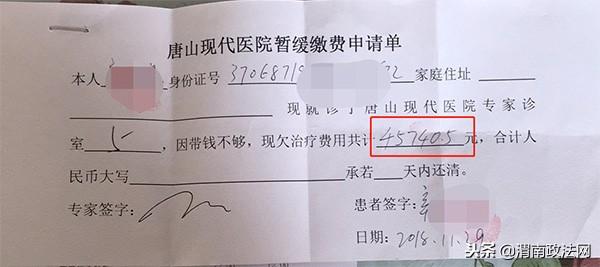 唐山现代医院暂缓缴费申请单
本人 身份证号 37068719 2 家庭住址
现就诊于唐山现代医院专家诊
室 5 ，因带钱不够，现欠治疗费用共计 45740.5 元，合计人
民币大写 承若 天内还清。
专家签字： 患者签字：
日期：2018.11.29
头条 @渭南政法网